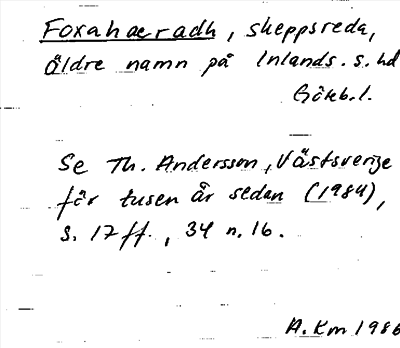 Foxahæradh, skeppsreda,
äldre namn på Inlands. s. hd
Göteb. l.
Se Th. Andersson, Västsverige
för tusen år sedan (1984),
s. 17 ff., 34 n. 16.
A. Km 1986